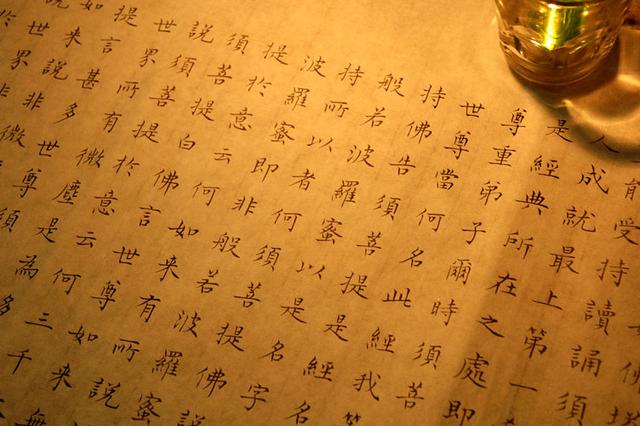 受持讀誦須
人成就最上第一
是經典所在之處即
尊重弟子爾時須菩
世尊當何名此經我
持佛告須菩提是經名
般若波羅蜜以是名字
持所以者何須菩提佛說
波羅蜜即非般若波羅蜜
提於意云何如來有所說
須菩提白佛言世尊如來
說須菩提於意云何三千
世界所有微塵是為多
提言甚多世尊須
如來說非微
世界非